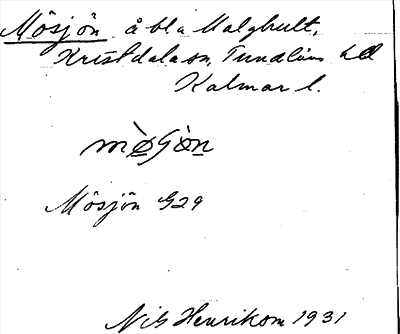 Mösjön å bl a Malghult,
Kristdala sn, Tunaläns hd
Kalmar l.
mò̲sjò̲n
Mösjön G29
Nils Henrikson 1931